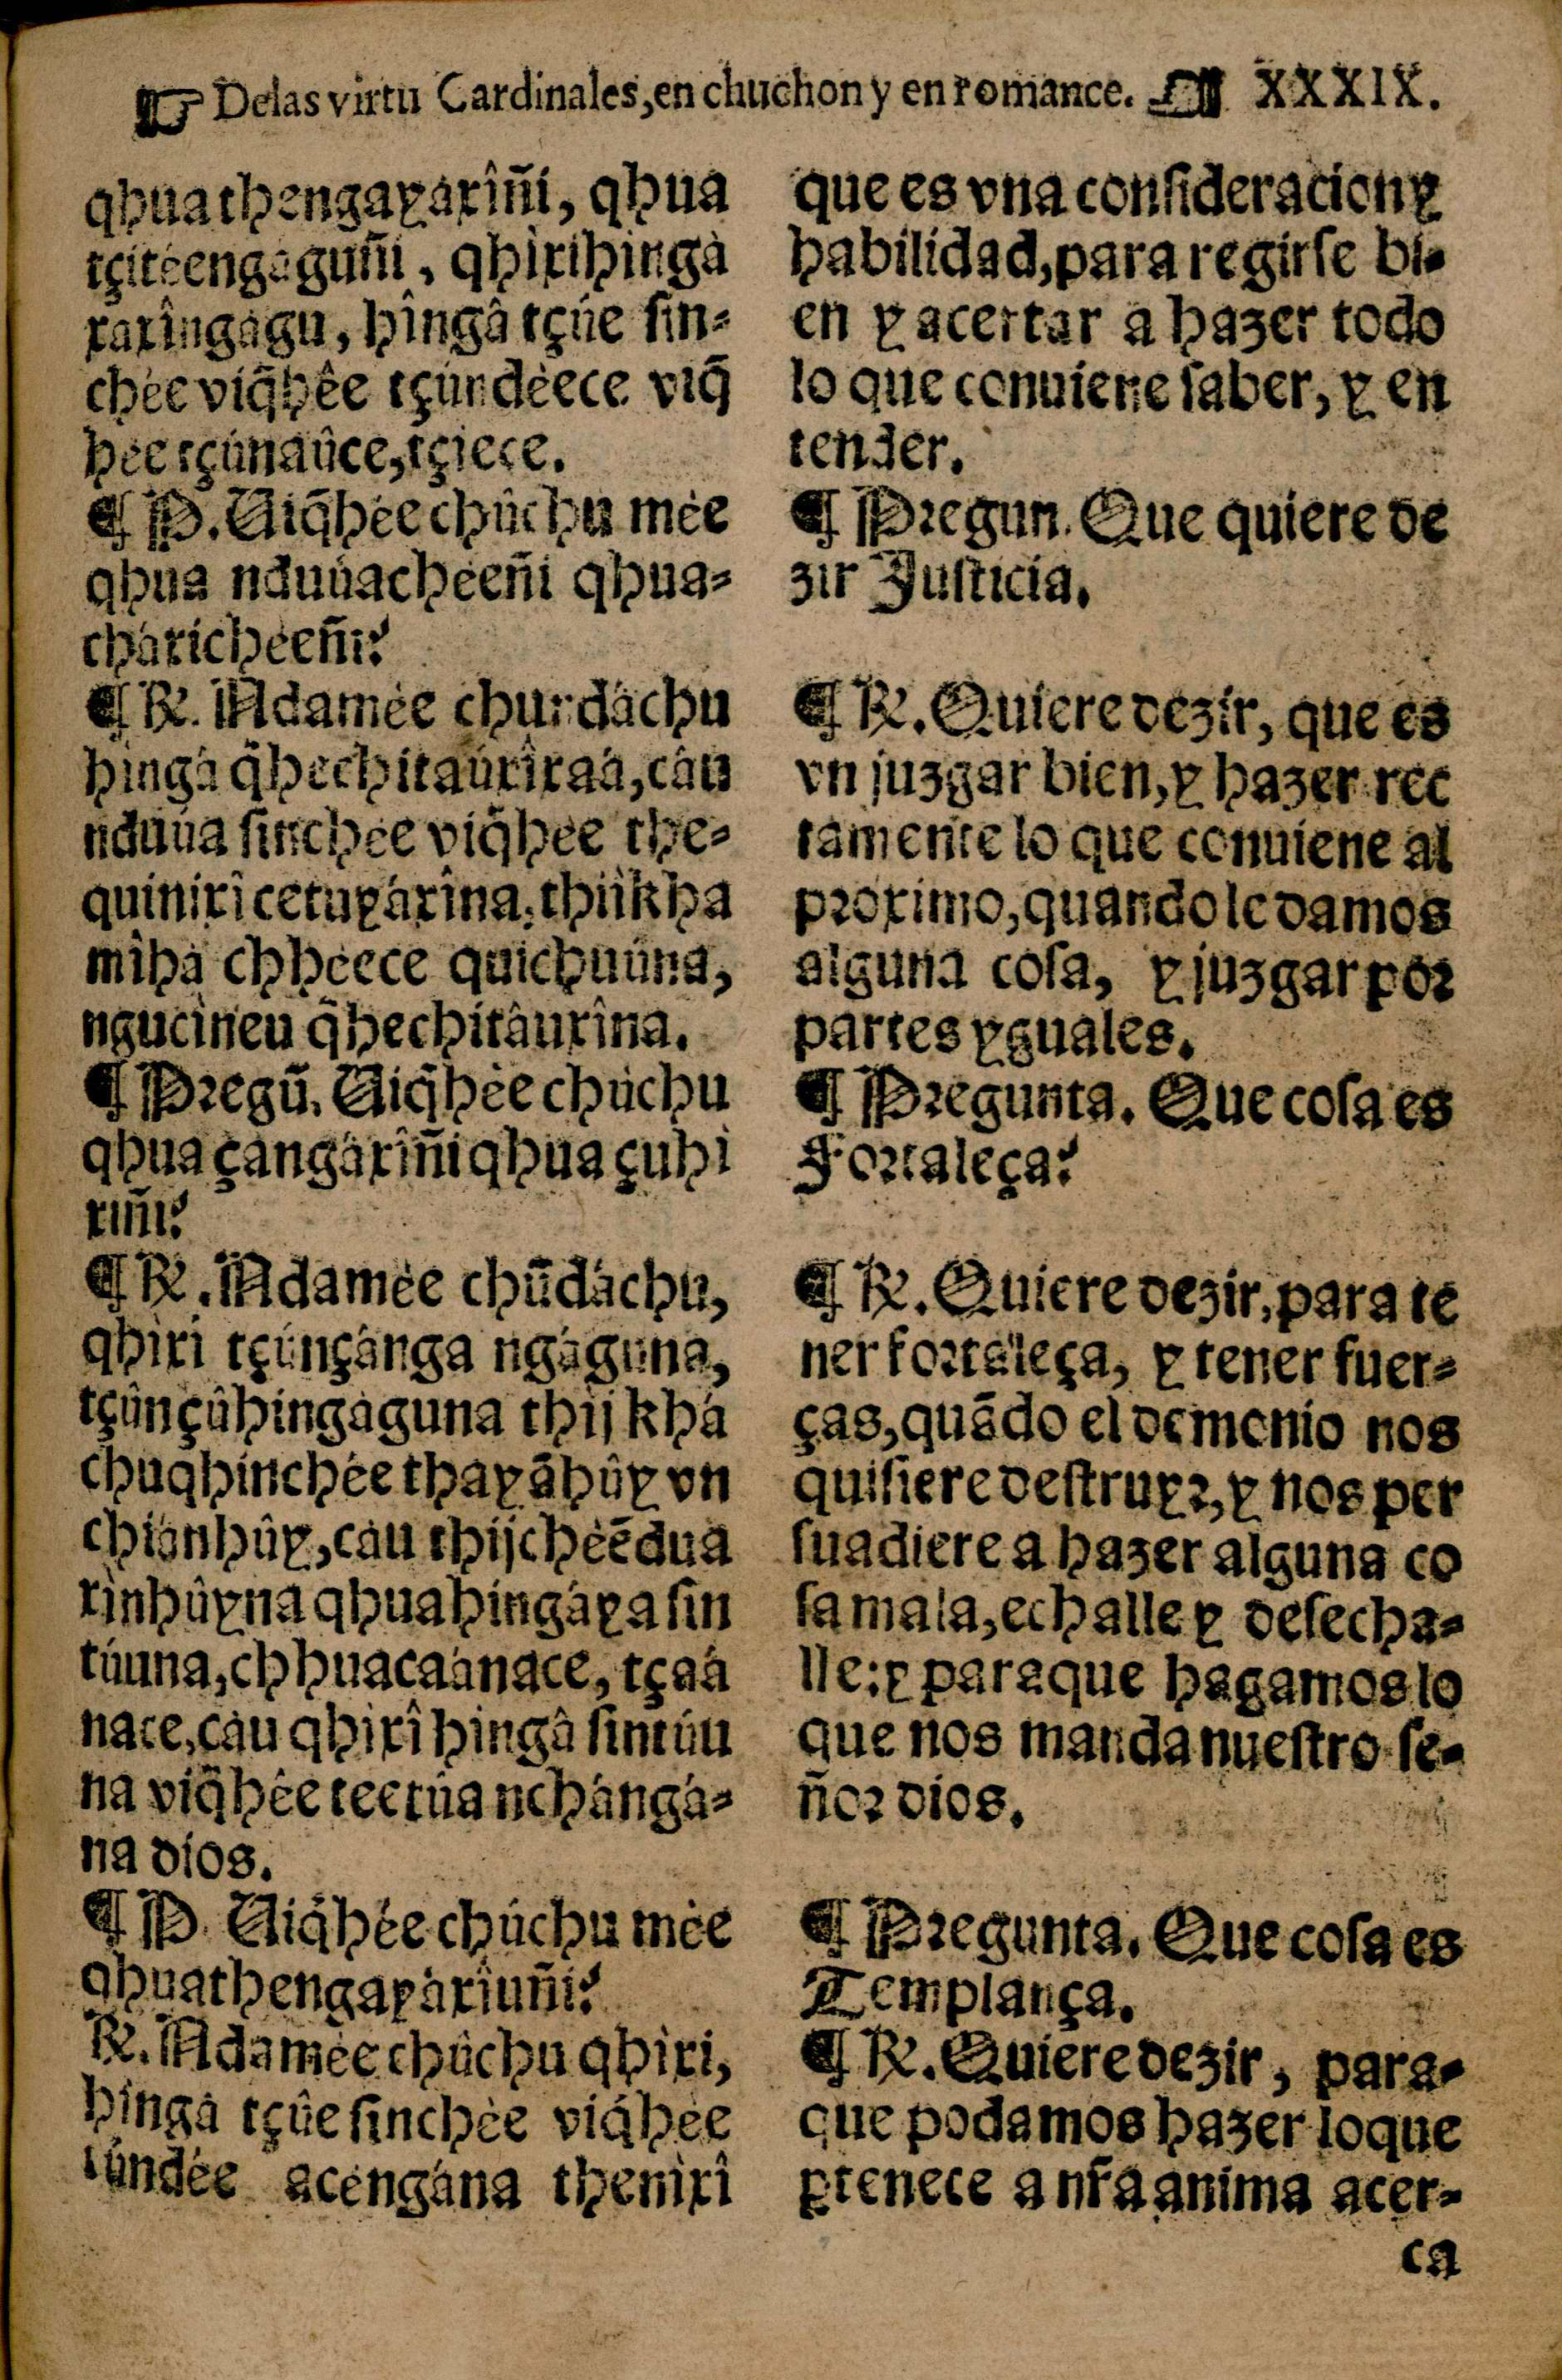 ☞ Delas virtu Cardinales, en chuchon y en romance. XXXIX.
qhua thengayaxîñi, qhua
tçitéengaguñi, qhìxihingà
xaxîngàgu, hîngâ tçúe sin-
chée viq̃hêe tçúndèece viq̃
hée tçúnaûce, tçiece.
¶ P. Uiq̃hée chûchu mée
qhua nduúachéeñi qhua-
cháxichéeñi?
¶ R. Adamée chundáchu
hingá q̃hechitaúxîxaá, cáu
nduúa sinchée viq̃hée the-
quinixî cetuyáxîna, thiìkha
mîhà chhéece quichuúna,
ngucìneu q̃hechitâuxîna.
¶ Pregũ. Uiq̃hèe chúchu
qhua çangàxîñi qhua çuhì
xiñi?
¶ R. Adamèe chũdáchu,
qhìxi tçúnçánga ngáguna,
tçûnçûhingàguna thij khá
chuqhinchée thayãhûy vn
chianhûy, cáu thijchéẽdua
xìnhûyna qhua hingáya sin
túuna, chhuacaànace, tçaá
nace, càu qhixî hingâ sintúu
na viq̃hêe teetúa nchángá-
na dios.
¶ P. Uiq̃hée chúchu mèe
qhuathengayàxîuñi?
R. Adamèe chûchu qhìxi,
hìngà tçûe sinchèe viq̃hèe
túndée acéngána thenixî
que es vna consideracion y
habilidad, para regirse bi-
en y acertar a hazer todo
lo que conuiene saber, y en
tender.
¶ Pregun. Que quiere de
zir Justicia.
¶ R. Quiere dezir, que es
vn juzgar bien, y hazer rec
tamente lo que conuiene al
proximo, quando le damos
alguna cosa, y juzgar por
partes yguales.
¶ Pregunta. Que cosa es
Fortaleça?
¶ R. Quiere dezir, para te
ner fortaleça, y tener fuer-
ças, quãdo el demonio nos
quisiere destruyr, y nos per
suadiere a hazer alguna co
sa mala, echalle y desecha-
lle: y paraque hagamos lo
que nos manda nuestro se-
ñor dios.
¶ Pregunta. Que cosa es
Templança.
¶ R. Quiere dezir, para-
que podamos hazer loque
ꝑtenece a nr̃a anima acer-
ca